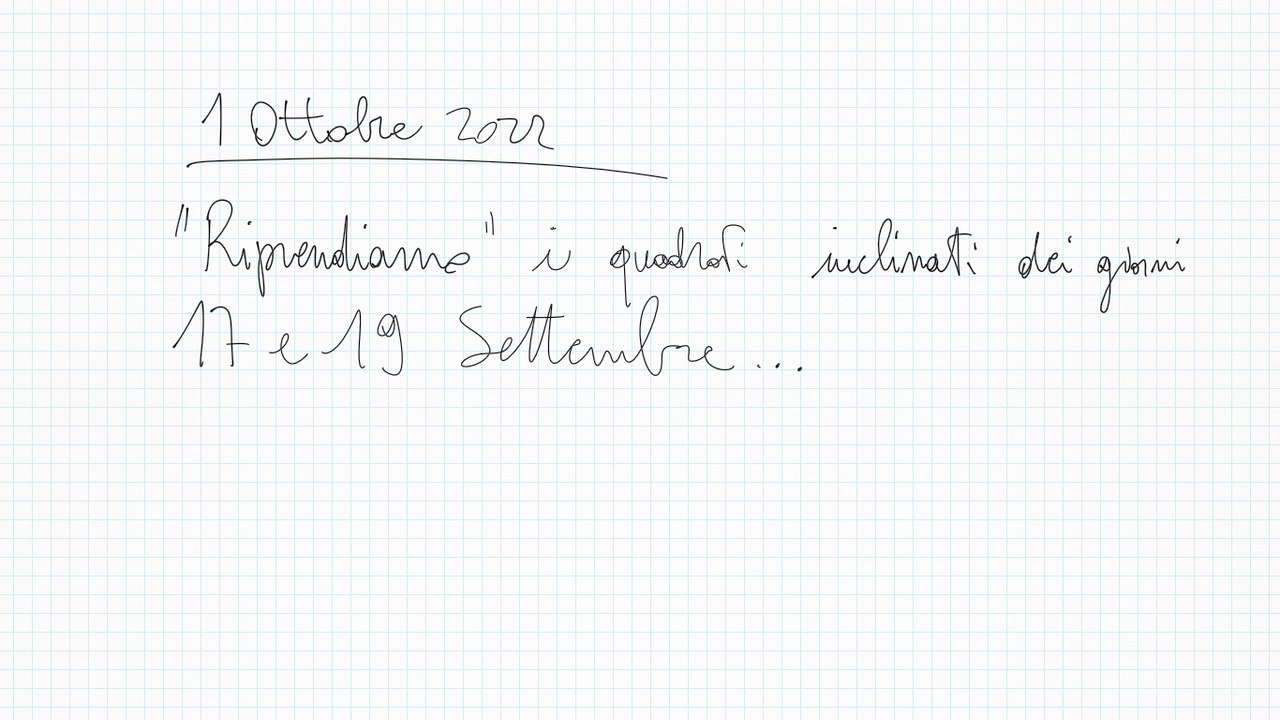 1 Ottobre 2022
"Riprendiamo" i quadrati inclinati dei giorni
17 e 19 Settembre...